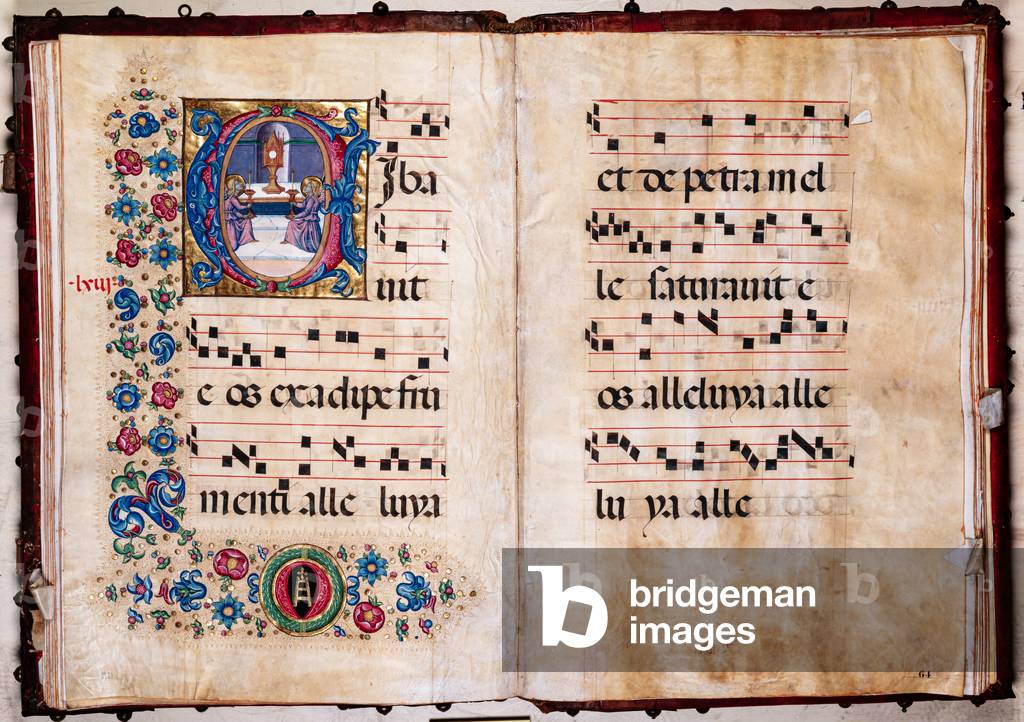 Ciba
vit
-lxiij-
e os ex adipe fru
menti alle luya
et de petra mel
le saturavit e
os alleluya alle
lu ya alle
64
b bridgeman
images